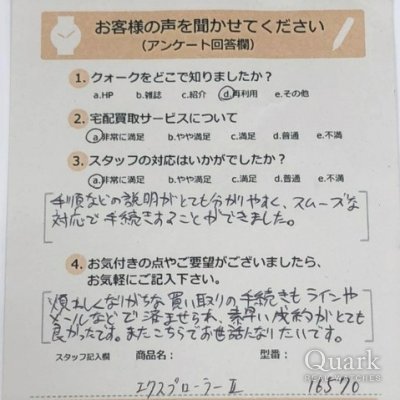 お客様の声を聞かせてください
(アンケート回答欄)
1. クォークをどこで知りましたか?
a.HP b.雑誌 c.紹介 d.再利用 e.その他
2. 宅配買取サービスについて
a.非常に満足 b.やや満足 c.満足 d.普通 e.不満
3. スタッフの対応はいかがでしたか?
a.非常に満足 b.やや満足 c.満足 d.普通 e.不満
手順などの説明がとても分かりやすく、スムーズな
対応で手続きすることができました。
4. お気付きの点やご要望がございましたら、
お気軽にご記入下さい。
煩わしくなりがちな買い取りの手続きもラインや
メールなどで済ませられ、素早い成約がとても
良かったです。またこちらでお世話になりたいです。
スタッフ記入欄 商品名: 型番:
エクスプローラーⅡ 16570
Quark